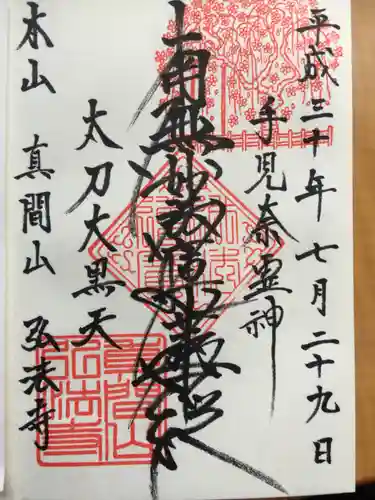 平成三十年七月二十九日
手児奈霊神
南無妙法蓮華経
太刀大黒天
本山 真間山 弘法寺
真間山
弘法寺